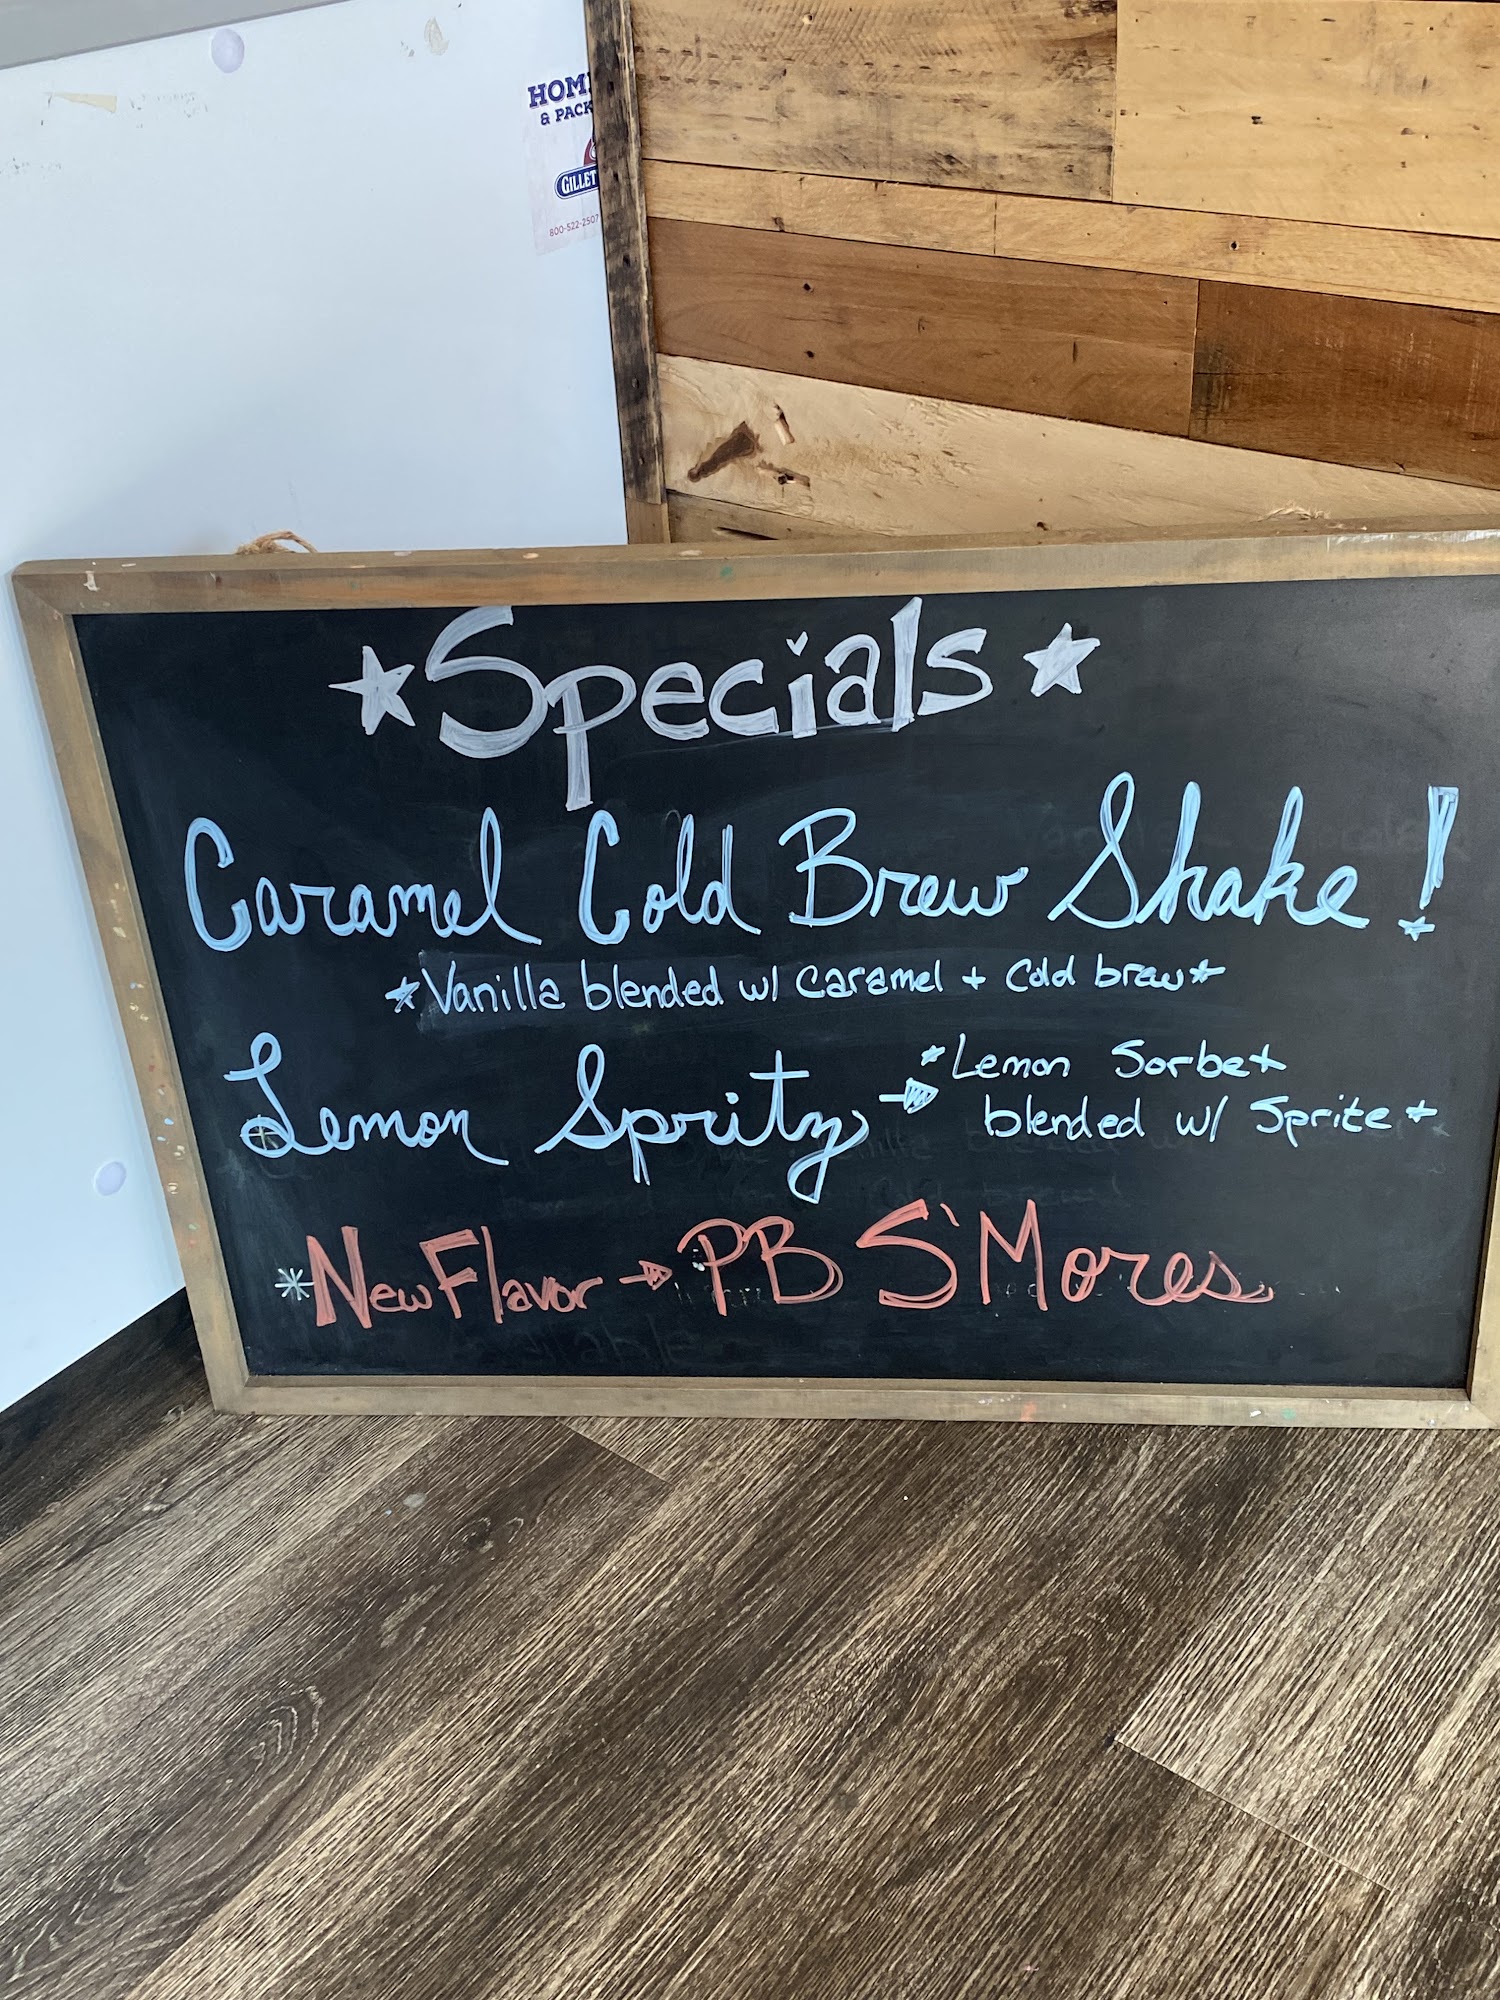 HOM
& PACK
GILLET
800-522-2507
Specials
Caramel Cold Brew Shake!
*Vanilla blended w/ caramel + cold brew*
Lemon Spritz → *Lemon Sorbet
blended w/ Sprite*
*New Flavor → PB S'Mores